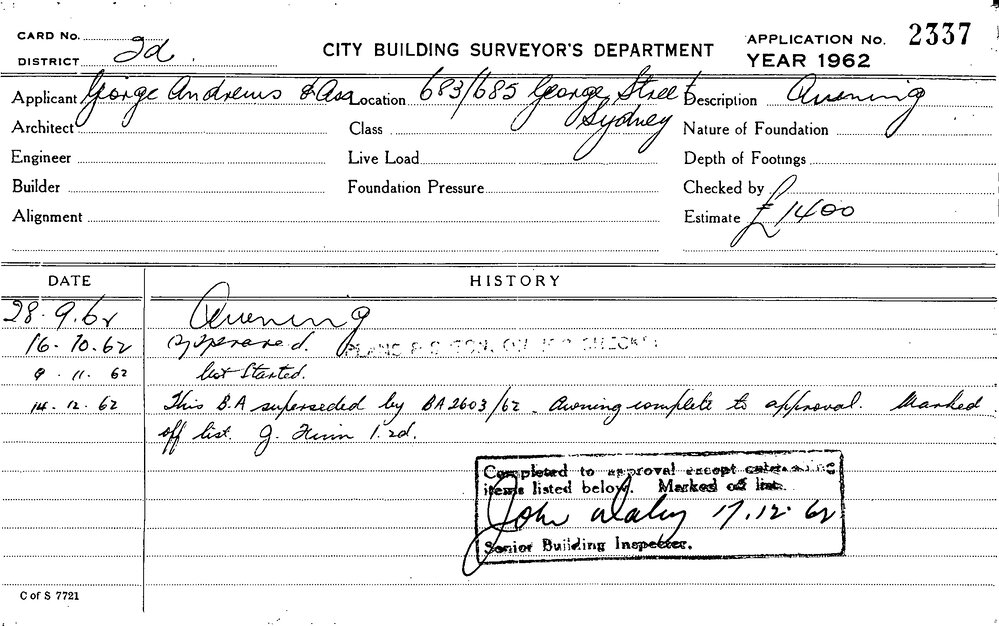 CARD No.
DISTRICT 2d
CITY BUILDING SURVEYOR'S DEPARTMENT
APPLICATION No. 2337
YEAR 1962
Applicant George Andrews & Ass Location 683/685 George Street Sydney Description Awning
Architect Class Nature of Foundation
Engineer Live Load Depth of Footings
Builder Foundation Pressure Checked by
Alignment Estimate £1400
DATE HISTORY
28.9.62 Awning
16.10.62 Approved. PLANS
9.11.62 Not Started.
14.12.62 This B.A superseded by BA2603/62. Awning complete to approval. Marked
off list. J. 2d.
Completed to approval except
items listed below. Marked off list.
John Daley 17.12.62
Senior Building Inspector.
C of S 7721